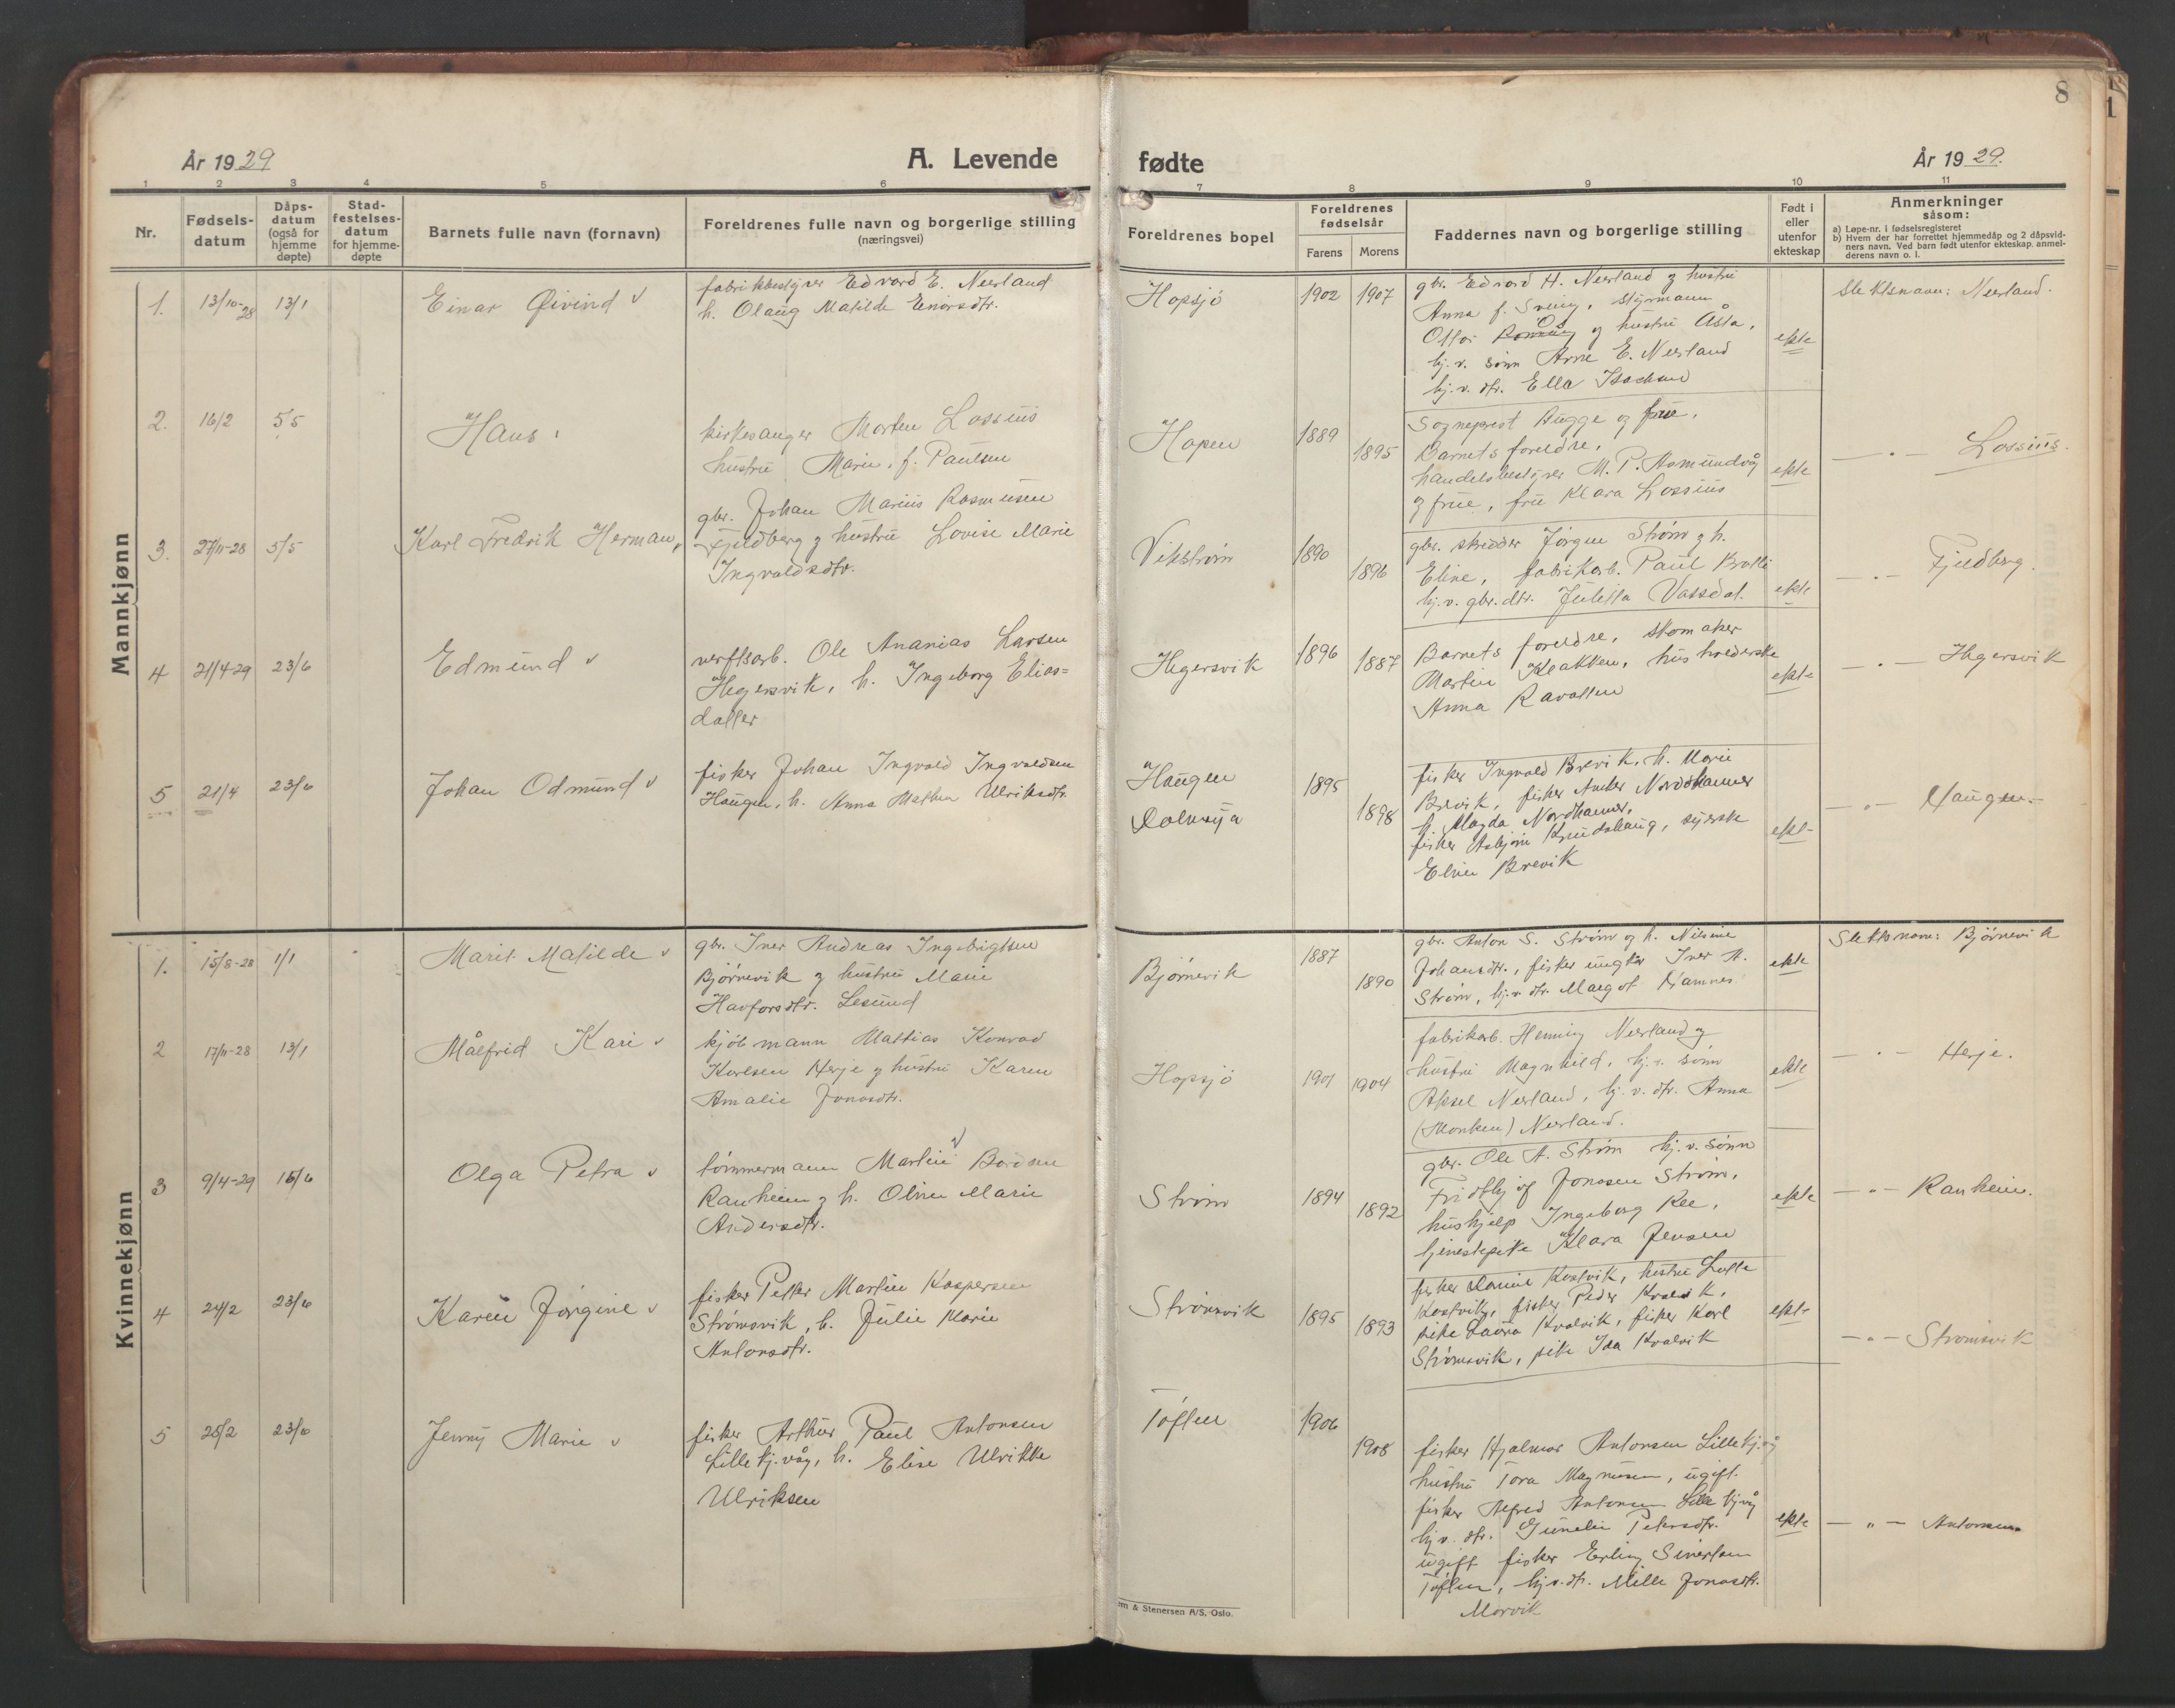 År 1929 A. Levende
1 2 3 4 5 6
Nr. Fødselsdatum Dåpsdatum (også for hjemmedøpte) Stadfestelsesdatum for hjemmedøpte Barnets fulle navn (fornavn) Foreldrenes fulle navn og borgerlige stilling (næringsvei)
Mannkjønn
1. 13/10-28 13/1 Einar Øivind v fabrikkbestyrer Edvard E. Neerland
h. Olaug Matilde Einarsdtr.
2. 16/2 5/5 Hans kirkesanger Morten Lossius
hustru Marie, f. Paulsen
3. 27/11-28 5/5 Karl Fredrik Herman gbr. Johan Marius Rasmusen
Fjeldberg og hustru Lovise Marie
Ingvaldsdtr.
4 21/4-29 23/6 Edmund v verftsarb. Ole Ananias Larsen
Hegersvik, h. Ingeborg Elias=
datter
5 21/4 23/6 Johan Odmund v fisker Johan Ingvald Ingvaldsen
Haugen, h. Anna Mathea Ulriksdtr.
Kvinnekjønn
1. 15/8-28 1/1 Marit Matilde v gbr. Iver Andreas Ingebrigtsen
Bjørnevik og hustru Marie
Havforsdtr. Lesund
2 17/11-28 13/1 Målfrid Kari v kjøbmann Mattias Konrad
Karlsen Herje og hustru Karen
Amalie Jonasdtr.
3 9/4-29 16/6 Olga Petra v tømmermann Martin Bordsen
Ranheim og h. Oline Marie
Andersdtr.
4 24/2 23/6 Karen Jørgine v fisker Petter Martin Kaspersen
Strømsvik, h. Julie Marie
Antonsdtr.
5 28/2 23/6 Jenny Marie v fisker Arthur Paul Antonsen
Lillekj.våg, h. Elise Ulrikke
Ulriksen
8
fødte År 1929.
7 8 9 10 11
Foreldrenes bopel Foreldrenes fødselsår Farens Morens Faddernes navn og borgerlige stilling Født i eller utenfor ekteskap Anmerkninger såsom:
a) Løpe-nr. i fødselsregisteret
b) Hvem der har forrettet hjemmedåp og 2 dåpsvidners navn. Ved barn født utenfor ekteskap, anmelderens navn o. l.
Hopsjø 1902 1907 gbr. Edvard H. Neerland og hustru
Anna f. Sveing, styrmann
Ottar og hustru Åsta,
hj.v. sønn Arne E. Neerland
hj.v. dtr. Ella Isachsen
ekte Slektsnavn: Neerland.
Hopen 1889 1895 Sogneprest Bugge og frue,
Barnets foreldre,
handelsbestyrer M. P. Asmundvåg
og frue, fru Klara Lossius
ekte — " — Lossius.
Vikstrøm 1890 1896 gbr. skredder Jørgen Strøm og h.
Eline, fabrikarb. Paul Bratli
hj.v. gbr. dtr. Juletta Vassdal.
ekte — " — Fjeldberg.
Hegersvik 1896 1887 Barnets foreldre, skomaker
Martin Klakken, husholderske
Anna Ravatten
ekte — " — Hegersvik
Haugen
Dolmøya 1895 1898 fisker Ingvald Brevik, h. Marie
Brevik, fisker Anders Nordhammer
h. Magda Nordhammer,
fisker Asbjørn Knudshaug, syerske
Eline Brevik
ekte — " — Haugen
Bjørnevik 1887 1890 gbr. Anton S. Strøm og h. Nilsine
Johansdtr., fisker ungkar Iver A.
Strøm, hj.v. dtr. Margot Hamnes
ekte Slektsnavn: Bjørnevik
Hopsjø 1901 1904 fabrikarb. Henning Neerland og
hustru Magnhild, hj.v. sønn
Aksel Neerland, hj.v. dtr. Anna
(Monken) Neerland.
ekte — " — Herje.
Strøm 1894 1892 gbr. Ole A. Strøm hj.v. sønn
Fridthjof Jonasen Strøm,
hushjelp Ingeborg Ree,
tjenestepike Klara Jensen
ekte — " — Ranheim.
Strømsvik 1895 1893 fisker Kvalvik, hustru Lotte
Kvalvik, fisker Peder Kvalvik,
pike Laura Kvalvik, fisker Karl
Strømsvik, pike Ida Kvalvik
ekte — " — Strømsvik
Toften 1906 1908 fisker Hjalmar Antonsen Lillekj.våg
hustru Tora Magnusen, ugift
fisker Alfred Antonsen Lillekj.våg
hj.v. dtr. Gunelie Petersdtr.
ugift fisker Erling Sivertsen
Toften, hj.v. dtr. Mille Jonasdtr.
Morvik
ekte — " — Antonsen
m & Stenersen A/S, Oslo.